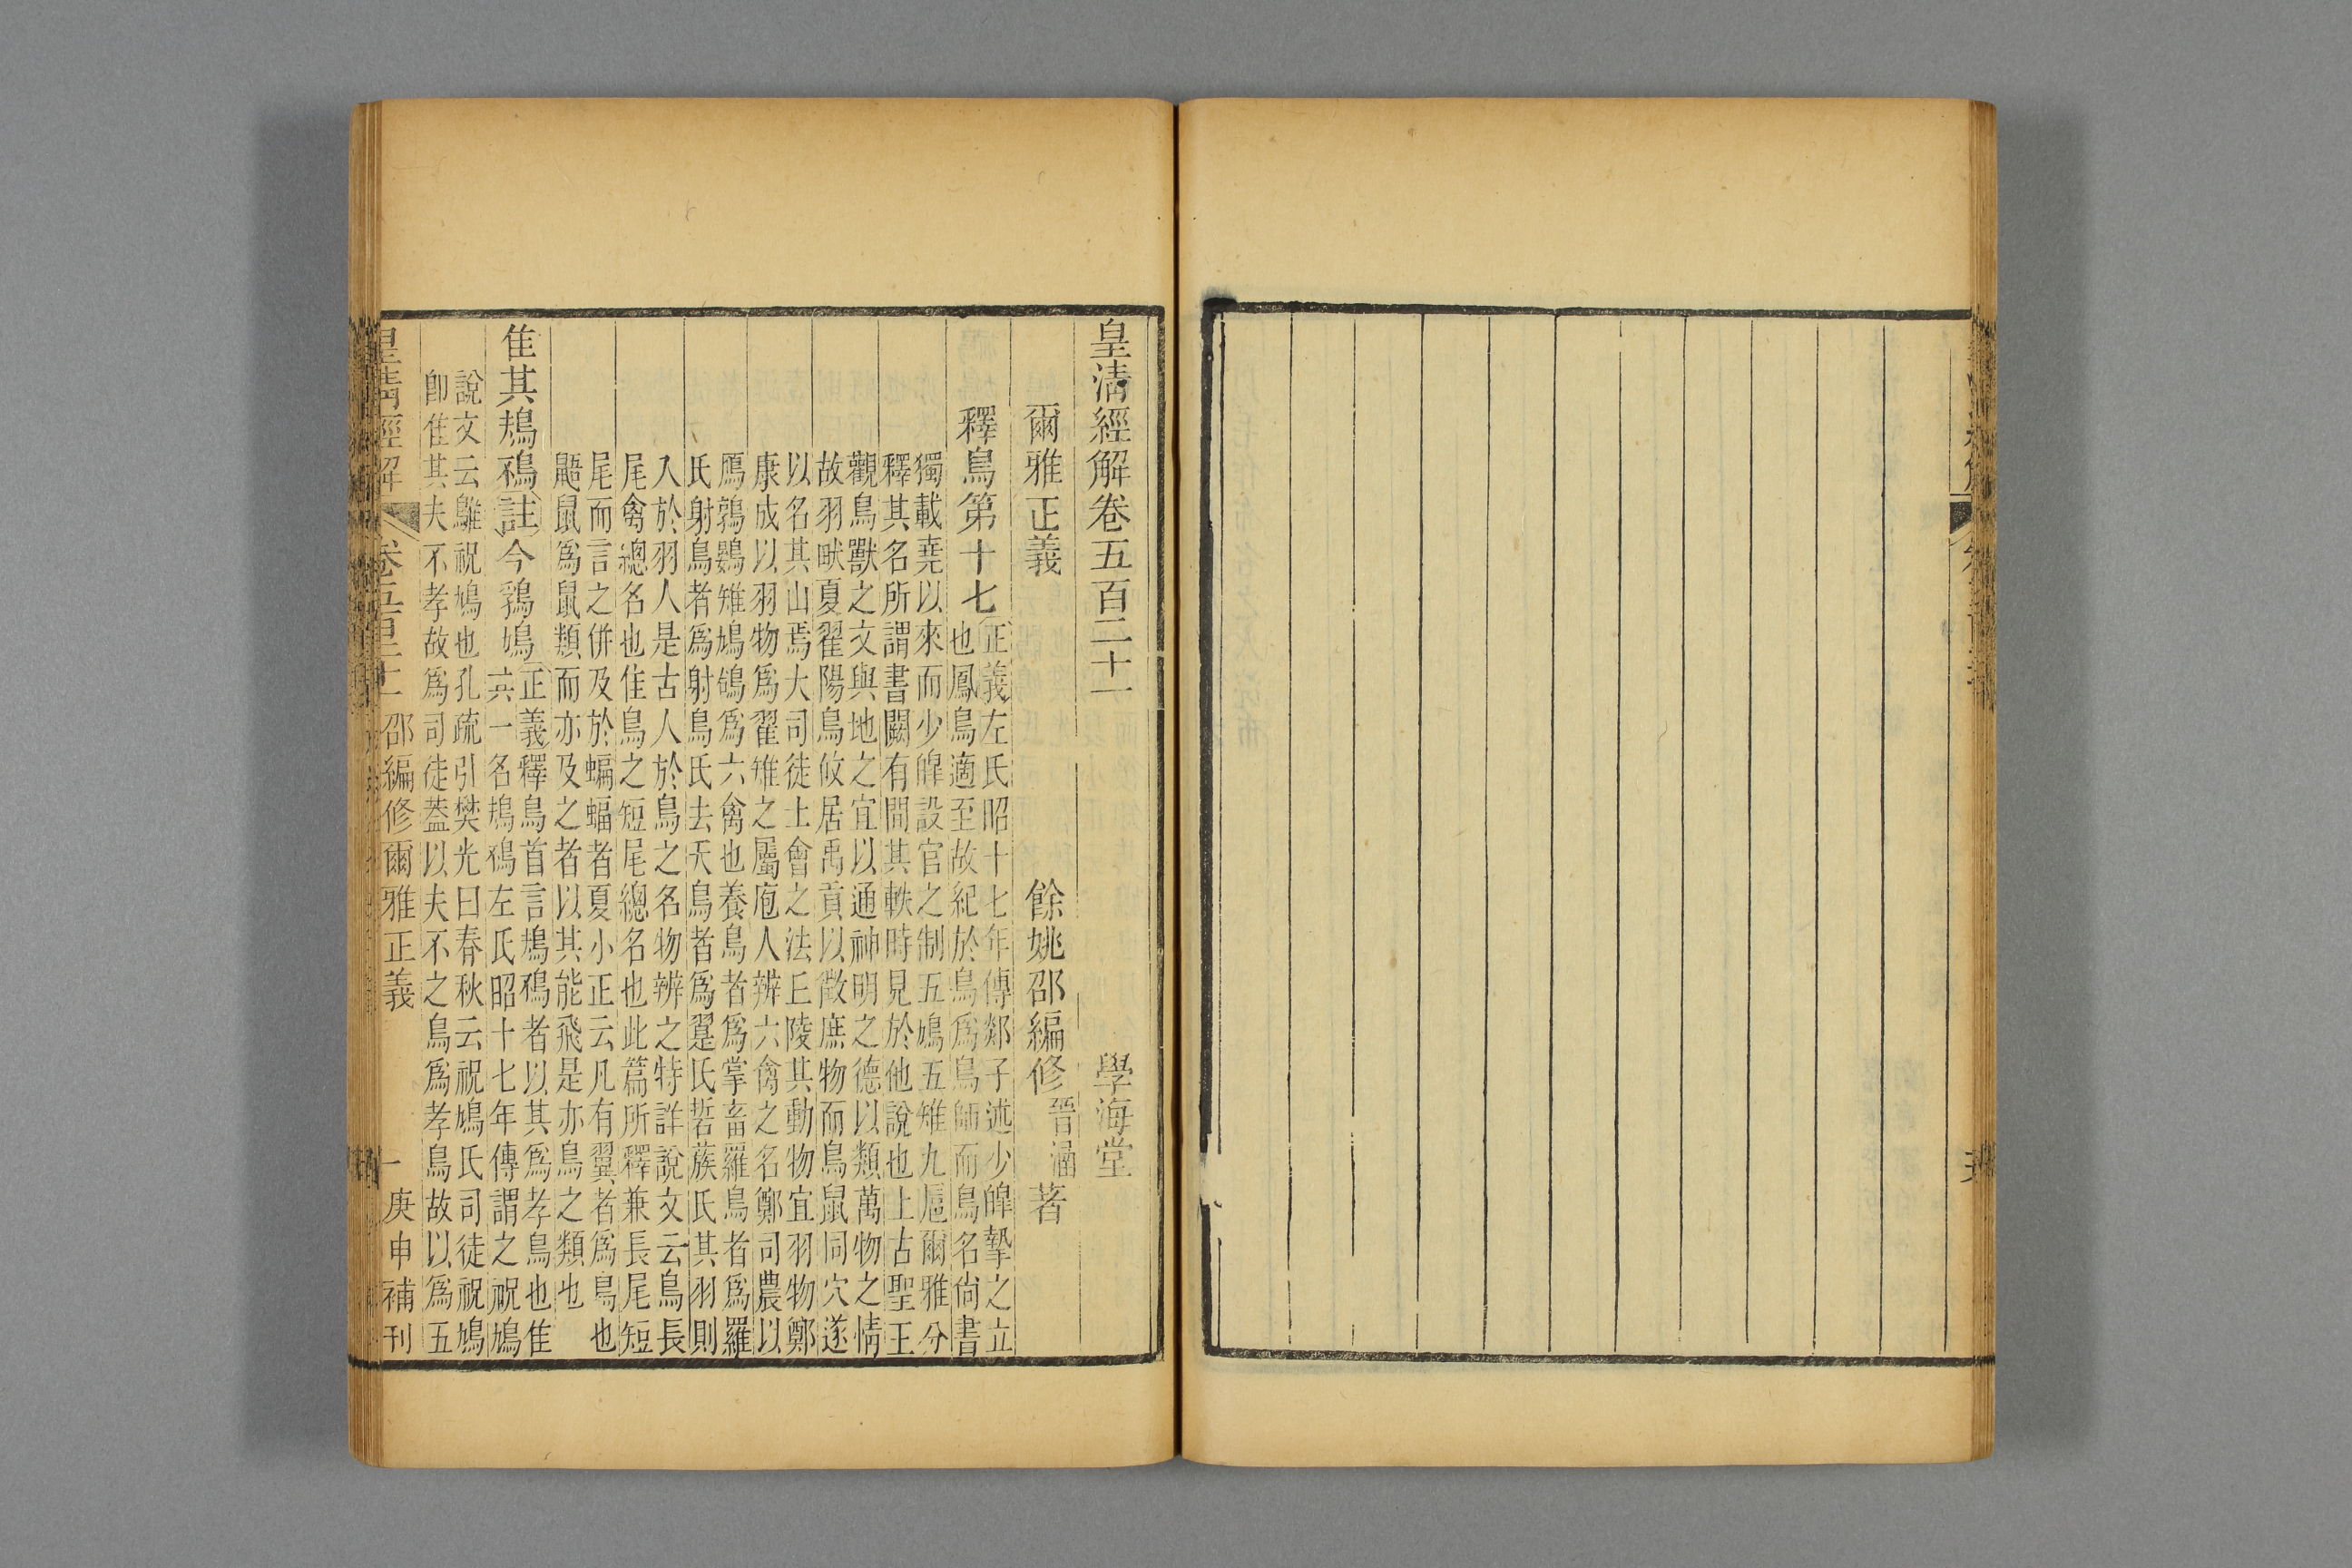 皇清經解卷五百二十一
學海堂
爾雅正義
餘姚邵編修晉涵著
釋鳥第十七
正義左氏昭十七年傳郯子述少皥摯之立
也鳳鳥適至故紀於鳥爲鳥師而鳥名尙書
獨載堯以來而少皥設官之制五鳩五雉九扈爾雅分
釋其名所謂書闕有間其軼時見於他說也上古聖王
觀鳥獸之文與地之宜以通神明之德以類萬物之情
故羽畎夏翟陽鳥攸居禹貢以徵庶物而鳥鼠同穴遂
以名其山焉大司徒土會之法丘陵其動物宜羽物鄭
康成以羽物爲翟雉之屬庖人辨六禽之名鄭司農以
鴈鶉鷃雉鳩鴿爲六禽也養鳥者爲掌畜羅鳥者爲羅
氏射鳥者爲射鳥氏去夭鳥者爲翨氏硩蔟氏其羽則
入於羽人是古人於鳥之名物辨之特詳說文云鳥長
尾禽總名也隹鳥之短尾總名也此篇所釋兼長尾短
尾而言之併及於蝙蝠者夏小正云凡有翼者爲鳥也
鼯鼠爲鼠類而亦及之者以其能飛是亦鳥之類也
隹其鳺鴀註今鶉鳩
正義釋鳥首言鳺鴀者以其爲孝鳥也隹
其一名鳺鴀左氏昭十七年傳謂之祝鳩
說文云鵻祝鳩也孔疏引樊光曰春秋云祝鳩氏司徒祝鳩
卽隹其夫不孝故爲司徒葢以夫不之鳥爲孝鳥故以爲五
皇清經解
卷五百二十一
邵編修爾雅正義
一
庚申補刊